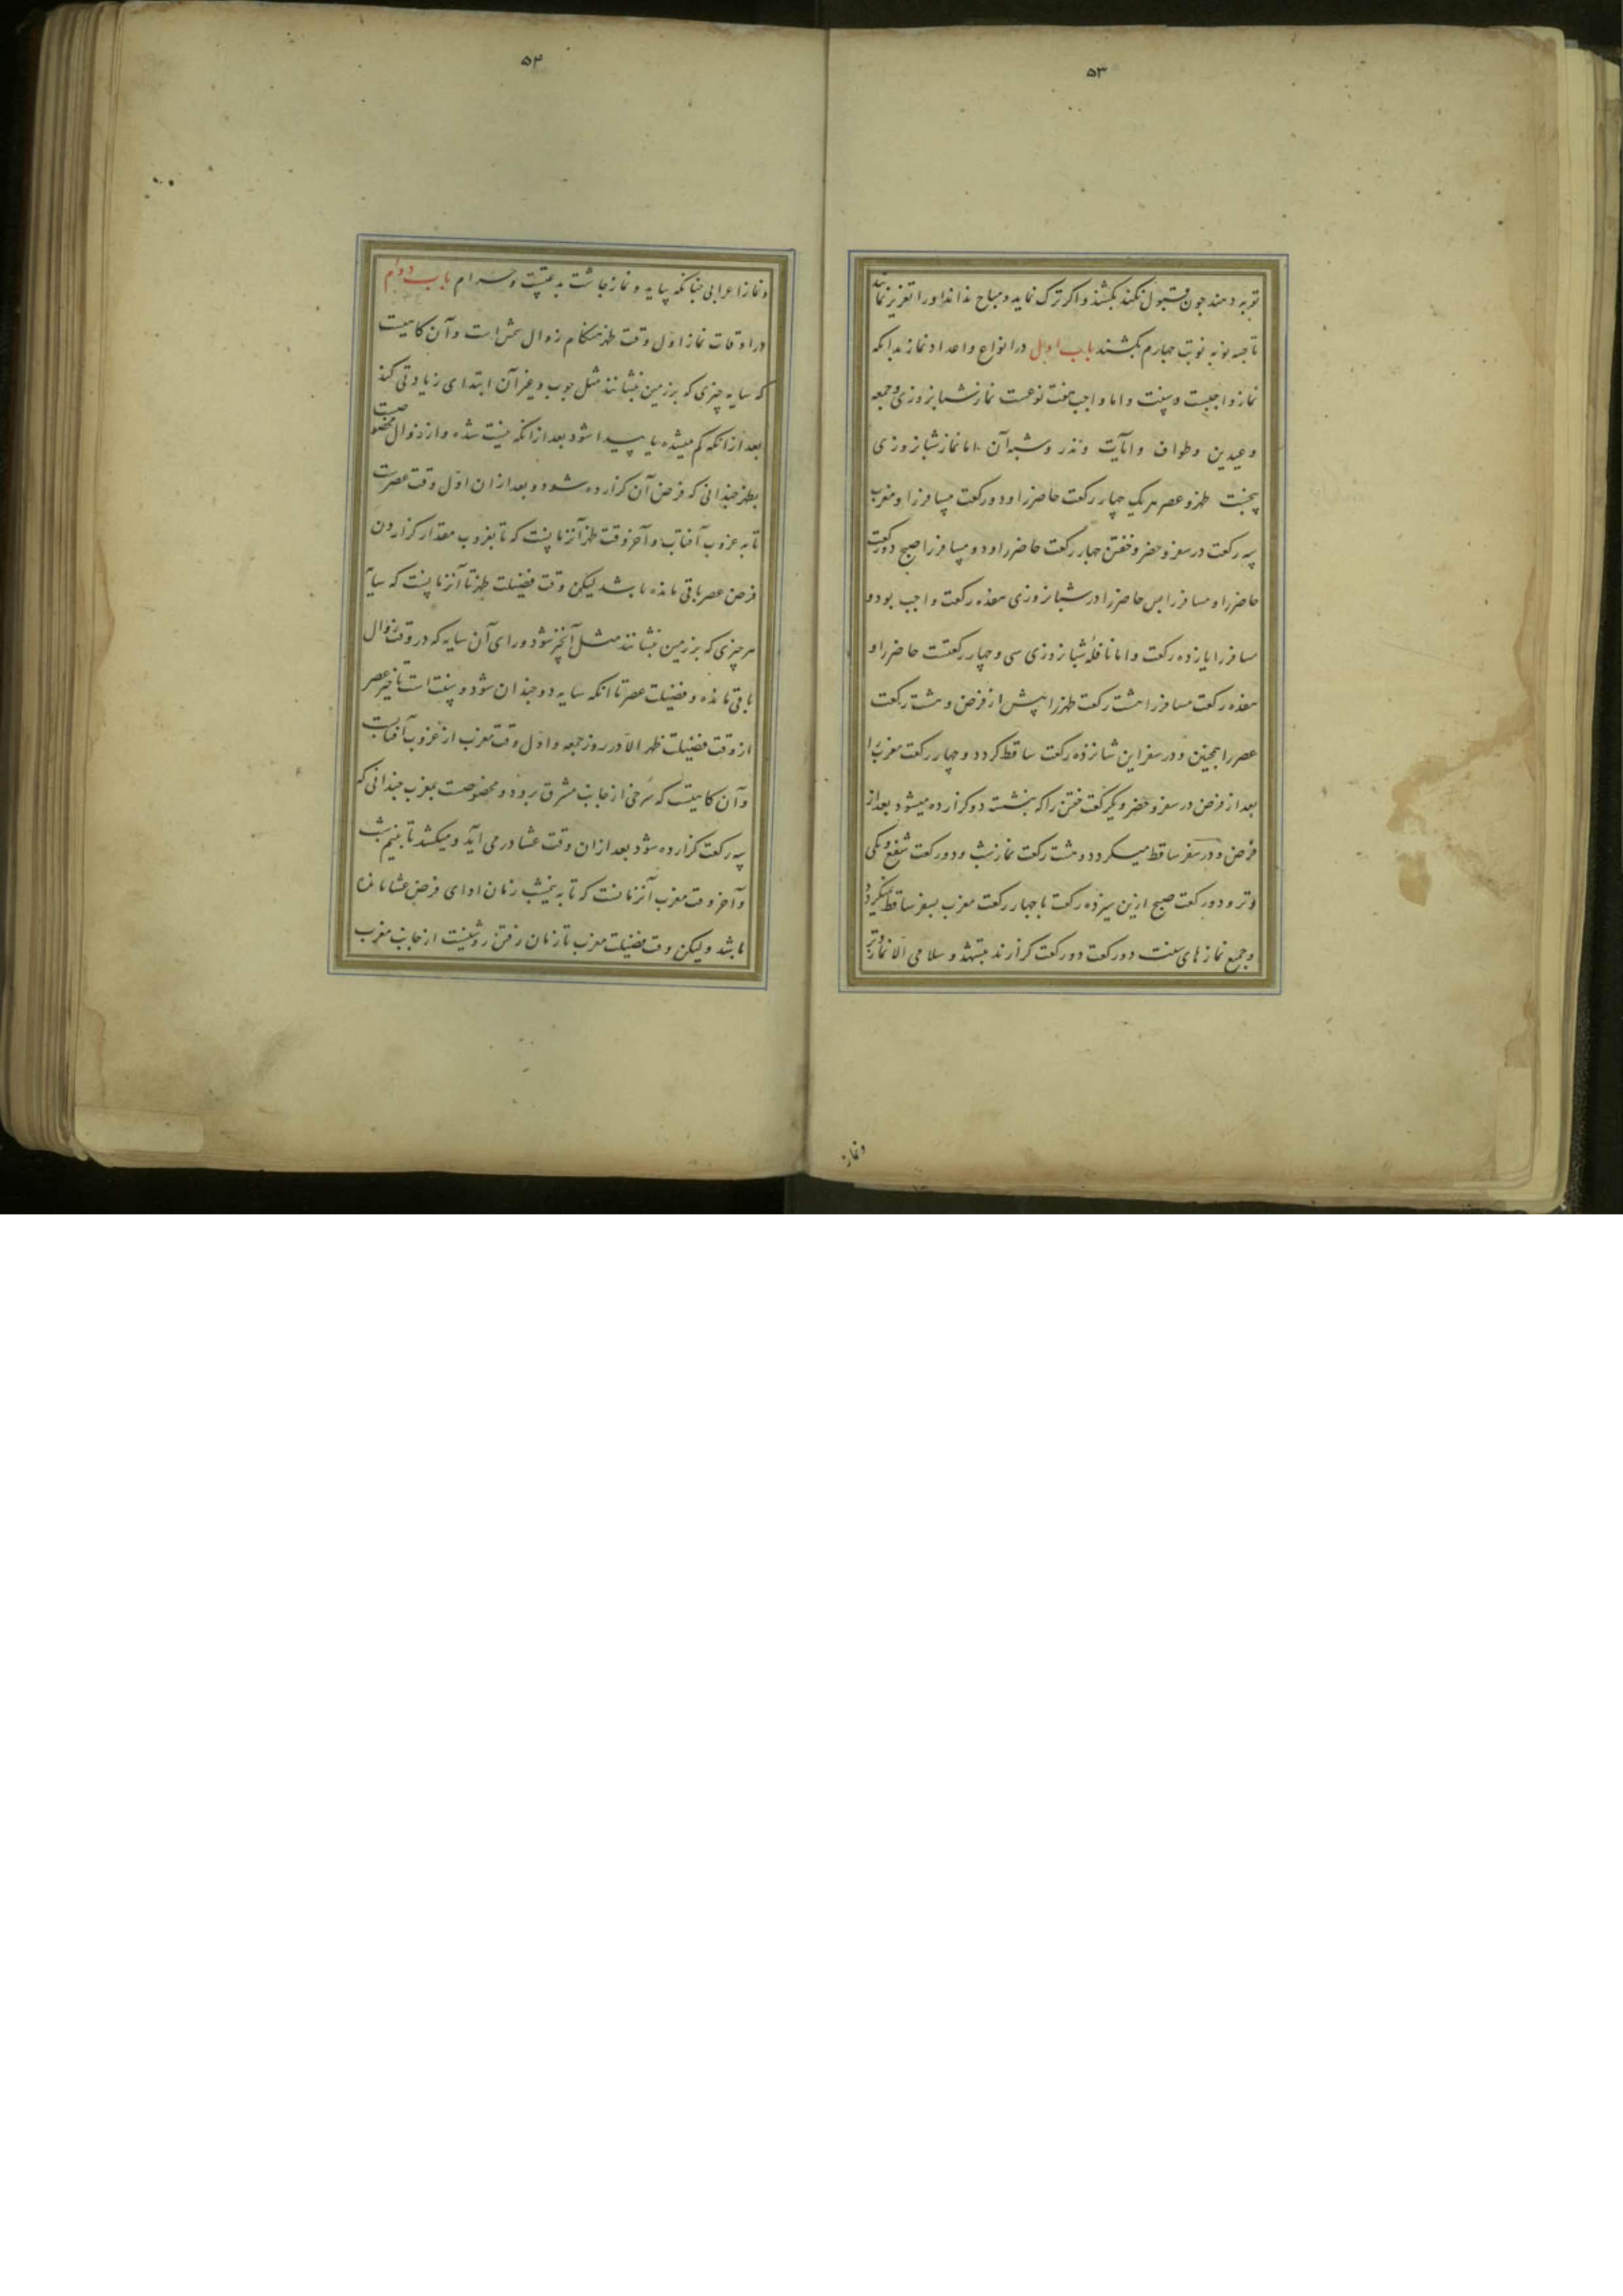 ۵۳
توبه دهند چون قبول نکند بکشند و اکر ترک نماید و مباح نداند او را تعزیر نمایند
تا سه نوبه نوبت چهارم بکشند باب اول در انواع و اعداد نماز بدانکه
نماز واجبست و سنت و اما واجب هفت نوعست نماز شبانروزی و جمعه
و عیدین و طواف و آیات و نذر و شبه آن اما نماز شبانروزی
پنجست ظهر و عصر هر یک چهار رکعت حاضر را و دو رکعت مسافر را و مغرب
سه رکعت در سفر و حضر و خفتن چهار رکعت حاضر را و دو مسافر را صبح دو رکعت
حاضر را و مسافر را پس حاضر را در شبانروزی هفده رکعت واجب بود و
مسافر را یازده رکعت و اما نافلهٔ شبانروزی سی و چهار رکعتست حاضر را و
هفده رکعت مسافر را هشت رکعت ظهر را پیش از فرض و هشت رکعت
عصر را همچنین و در سفر این شانزده رکعت ساقط کردد و چهار رکعت مغرب را
بعد از فرض در سفر و حضر و یکرکعت خفتن را که بنشست دو کزارده میشود بعد از
فرض و در سفر ساقط میکردد و هشت رکعت نماز شب و دو رکعت شفع و یکی
وتر و دو رکعت صبح ازین سیزده رکعت با چهار رکعت مغرب بسفر ساقط نمیکردد
و جمیع نمازهای سنت دو رکعت دو رکعت کزارند بتشهد و سلامی الا نماز وتر
و نماز
۵۴
و نماز اعرابی چنانکه بیاید و نماز چاشت بدعتست و حرام باب دوم
در اوقات نماز اول وقت ظهر هنکام زوال شمس است و آن کاهیست
که سایه چیزی که بر زمین نشانند مثل چوب و غیر آن ابتدای زیادتی کند
بعد از آنکه کم میشده یا پیدا شود بعد از آنکه نیست شده و از زوال مخصوصست
بظهر چندانی که فرض آن کزارده شود و بعد از ان اول وقت عصرست
تا به غروب آفتاب و آخر وقت ظهر آنزمانست که تا بغروب مقدار کزاردن
فرض عصر باقی مانده باشد لیکن وقت فضیلت ظهر تا آنزمانست که سایهٔ
هر چیزی که بر زمین نشانند مثل آنچیز شود ورای آن سایه که در وقت زوال
باقی مانده و فضیلت عصر تا آنکه سایه دو چندان شود و سنت است تاخیر عصر
از وقت فضیلت ظهر الا در روز جمعه و اول وقت مغرب از غروب آفتابست
و آن کاهیست که سرخی از جانب مشرق برود و مخصوصست بمغرب چندانی که
سه رکعت کزارده شود بعد از ان وقت عشا در می آید و میکشد تا بنیم شب
و آخر وقت مغرب آنزمانست که تا به نیمشب زمان ادای فرض عشا مانده
باشد و لیکن وقت فضیلت مغرب تا زمان رفتن روشنیست از جانب مغرب